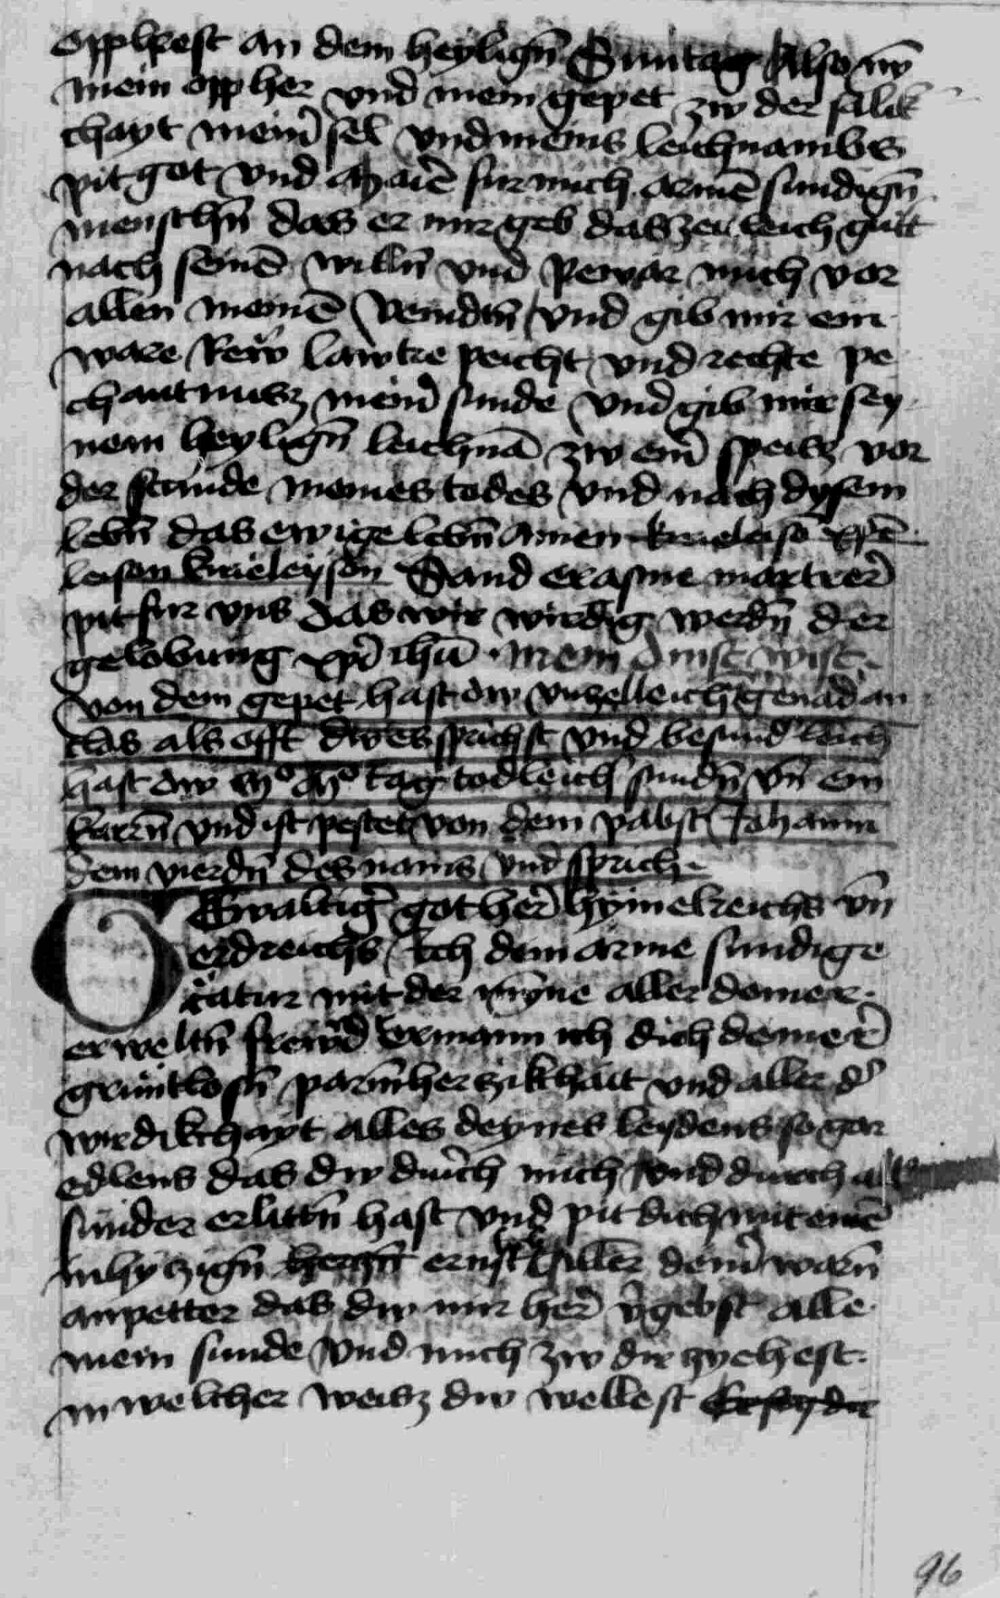 opphrest an dem heyligñ Suntag Also nȳ
mein opp her vnd mein gepet zw der salik
chayt meinˀ sel vnd meins leichnambs
pit got vnd für mich armē sundigñ
menschñ das er mir geb das zeitleich gütt
nach seinē willñ vnd pewar mich vor
allen meinē veindtñ vnd gib mir ein
ware Rew lawtre peicht vnd rechte pe
chantnusz meinˀ sunde vnd gib mir sey
nem heyligñ leichnā zw einˀ speisz vor
der stunde meines todes vnd nach dysem
lebñ das ewige lebñ amen kirieleisō xp̄e
leison kirieleyson Sand erasme martrerˀ
pit fur vns das wir wirdig werdñ der
gelobung xp̄i ihū . mein dinst wist
von dem gepet hast dw vnzelleich genad an
tlas als offt dw es sprichst vnd besundˀleich
hast dw tag todleich sundñ vñ ein
karrñ vnd ist pestet von dem pabst Johann
dem vierdñ des nams vnd sprich
O Gwaltigˀ got herˀ hymelreichs vñ
erdreichs Ich dein arme sundige
creatur mit der mȳne aller deiner
erweltñ frewd ermann ich dich deinerˀ
gruntlosñ parmherczikhait vnd aller dˀ
wirdikchayt alles deynes leydens so gar
edlens das dw durch mich vnd durch all
sunder erlittñ hast vnd pit dich mit einē
inhyczigñ herczñ ernst aller deinˀ warñ
anpetter das dw mir herˀ vˀgebst alle
mein sunde vnd mich zw dir zyehest
in welcher weisz dw wellest
96